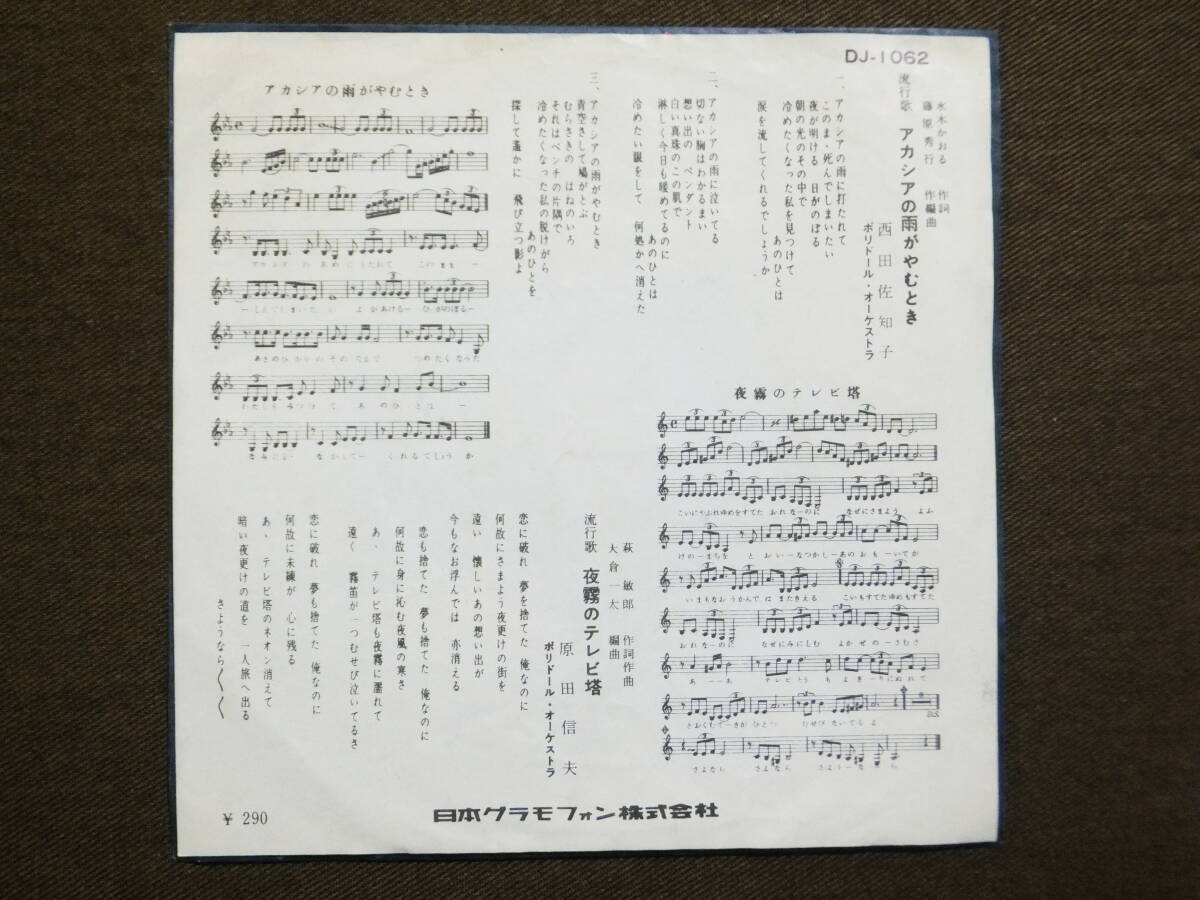 DJ-1062
水木かおる 作詞
藤原秀行 作編曲
流行歌 アカシアの雨がやむとき
西田佐知子
ポリドール・オーケストラ
一、アカシアの雨に打たれて
このまゝ死んでしまいたい
夜が明ける 日がのぼる
朝の光のその中で
冷めたくなった私を見つけて
あのひとは
涙を流してくれるでしょうか
二、アカシアの雨に泣いてる
切ない胸はわかるまい
想い出の ペンダント
白い真珠のこの肌で
淋しく今日も暖めてるのに
あのひとは
冷めたい眼をして 何処かへ消えた
三、アカシアの雨がやむとき
青空さして鳩がとぶ
むらさきの はねのいろ
それはベンチの片隅で
冷めたくなった私の脱けがら
あのひとを
探して遥かに 飛び立つ影よ
アカシアの雨がやむとき
アカシアの あめにうたれて このまま
しんでしまいたい よがあけるー ひがのぼるー
あさのひかりのそのなかで つめたくなった
わたしをみつけて あのひとはー
なみだをー ながしてー くれるでしょうか
夜霧のテレビ塔
こいにやぶれゆめをすてた おれなーのに なぜにさまよう よふ
けのーまちを とおいーなつかしーあのおもーいでが
いまもなおうかんでは またきえる こいもすてたゆめもすてた
おれなーのに なぜにみにしむ よかぜのーさむさ
あーーあ テレビとう もよぎーりにぬれて
とおくむてーきがひとつ むせびないてるさ
D.S.
さよなら さよなら さようーなら
萩敏郎 作詞作曲
大倉一太 編曲
流行歌 夜霧のテレビ塔
原田信夫
ポリドール・オーケストラ
恋に破れ 夢を捨てた 俺なのに
何故にさまよう夜更けの街を
遠い 懐しいあの想い出が
今もなお浮んでは 亦消える
恋も捨てた 夢も捨てた 俺なのに
何故に身に沁む夜風の寒さ
あゝ テレビ塔も夜霧に濡れて
遠く 霧笛が一つむせび泣いてるさ
恋に破れ 夢も捨てた 俺なのに
何故に未練が 心に残る
あゝ テレビ塔のネオン消えて
暗い夜更けの道を 一人旅へ出る
さようなら〱〱
¥ 290
日本グラモフォン株式会社